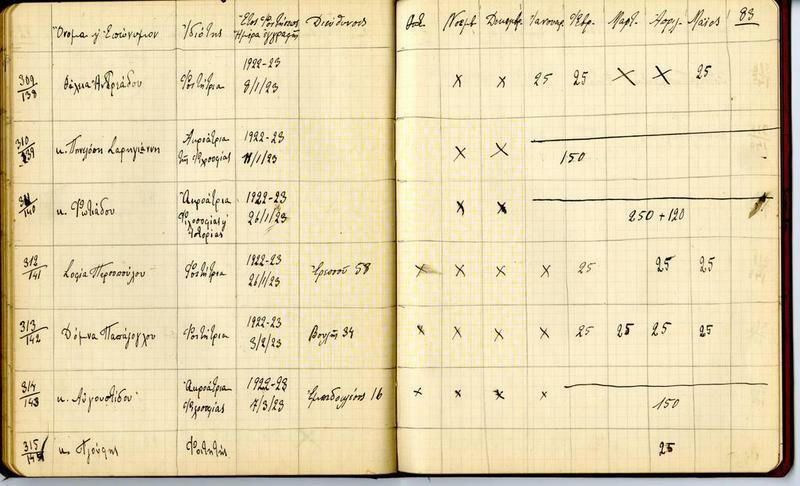 Ὄνομα κ' Ἐπώνυμον Ἰδιότης Ἔτος Φοιτήσεως Διεύθυνσις Ὀκτ. Νοεμβ. Δεκεμβρ. Ἰανουαρ. Φεβρ. Μαρτ. Ἀπριλ. Μάϊος 83
Ἡμέρα ἐγγραφῆς
309/138 Θάλεια Ἀνδριάδου Φοιτήτρια 1922-23 × × 25 25 × × 25
8/1/23
310/139 κ. Πηνελόπη Σαρηγιάννη Ἀκροάτρια 1922-23 × × 150
τῆς Φιλοσοφίας 11/1/23
311/140 κ. Φωτιάδου Ἀκροάτρια 1922-23 × × 250 + 120
Φιλοσοφίας κ' 26/1/23
Ἱστορίας
312/141 Σοφία Περσοπούλου Φοιτήτρια 1922-23 58 × × × × 25 25 25
26/1/23
313/142 Δόμνα Παπάζογλου Φοιτήτρια 1922-23 Βουλῆς 34 × × × × 25 25 25 25
3/2/23
314/143 κ. Αὐγουστίδου Ἀκροάτρια 1922-23 Ἐμπεδοκλέους 16 × × × × 150
Φιλοσοφίας 7/3/23
315/145 κ. Φοιτητής 25